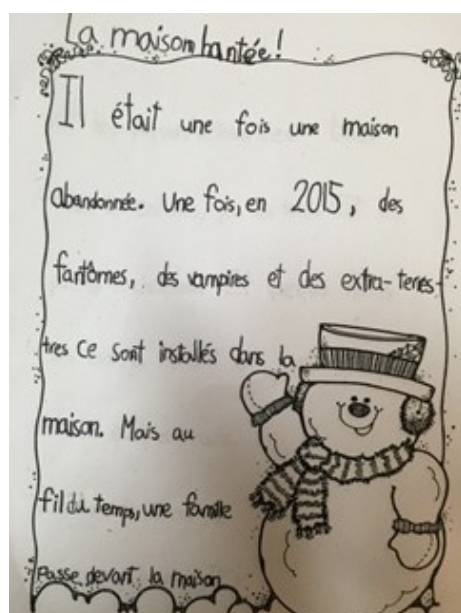 La maison hantée!
Il était une fois une maison
abandonnée. Une fois, en 2015, des
fantômes, des vampires et des extra-terres-
tres ce sont installés dans la
maison. Mais au
fil du temps, une famille
passe devant la maison